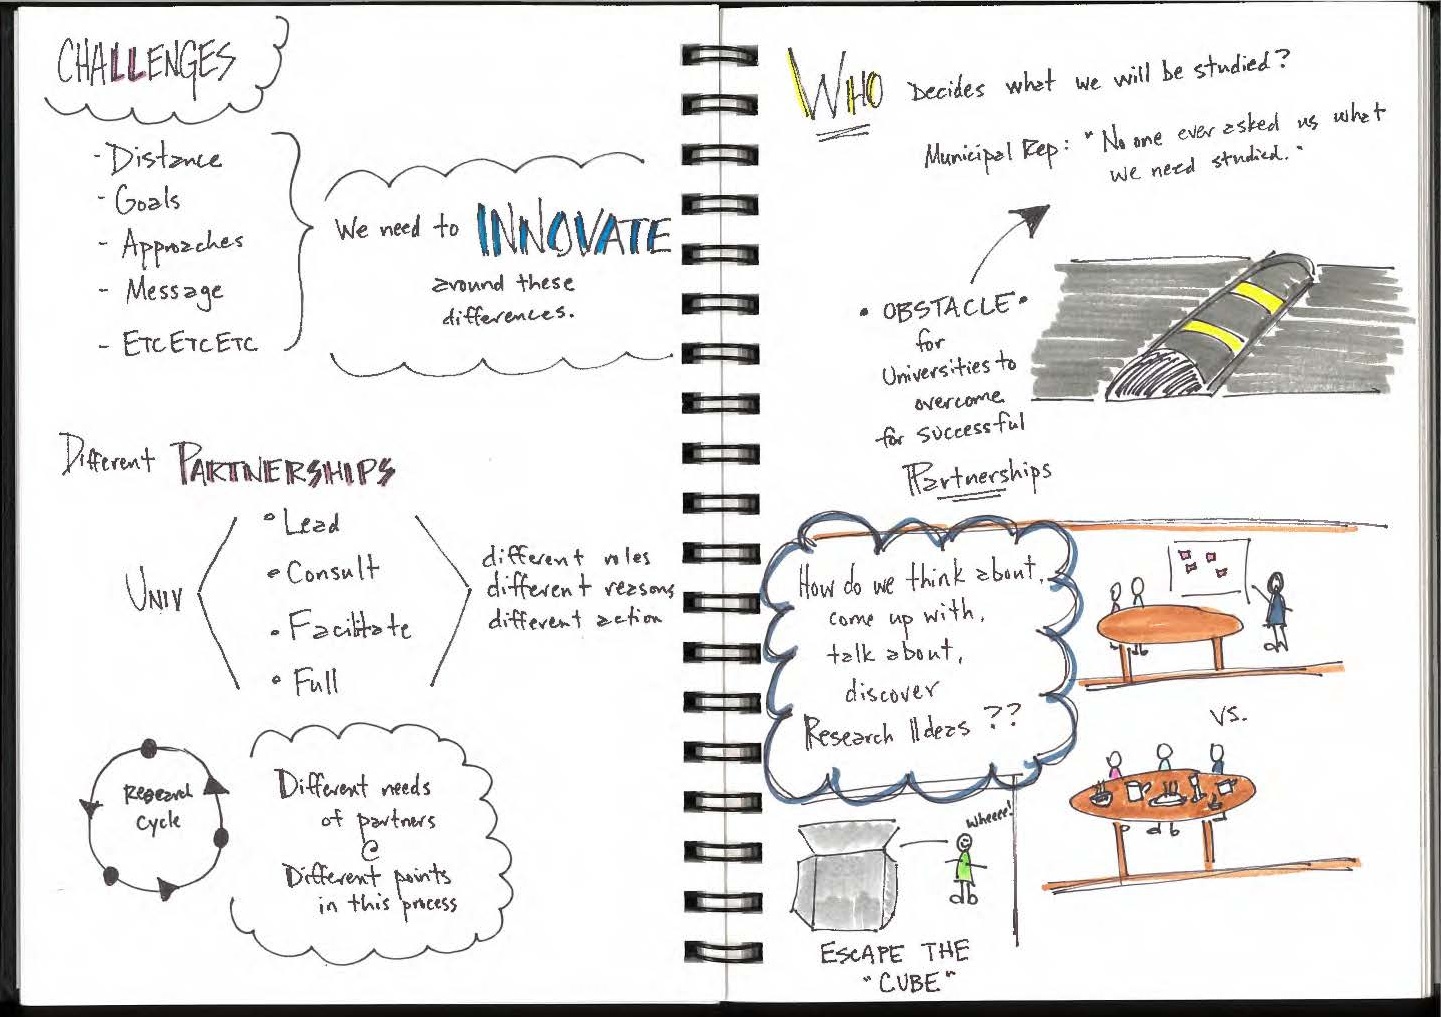 CHALLENGES
- Distance
- Goals
- Approaches
- Message
- ETC ETC ETC
We need to INNOVATE
around these
differences.
Different PARTNERSHIPS
UNIV
• Lead
• Consult
• Facilitate
• Full
different roles
different reasons
different action
Research
Cycle
Different needs
of partners
@
Different points
in this process
WHO Decides what we will be studied?
Municipal Rep: "No one ever asked us what
we need studied."
• OBSTACLE •
for
Universities to
overcome
for successful
Partnerships
How do we think about,
come up with,
talk about,
discover
Research Ideas ??
vs.
Wheeee!
ESCAPE THE
"CUBE"